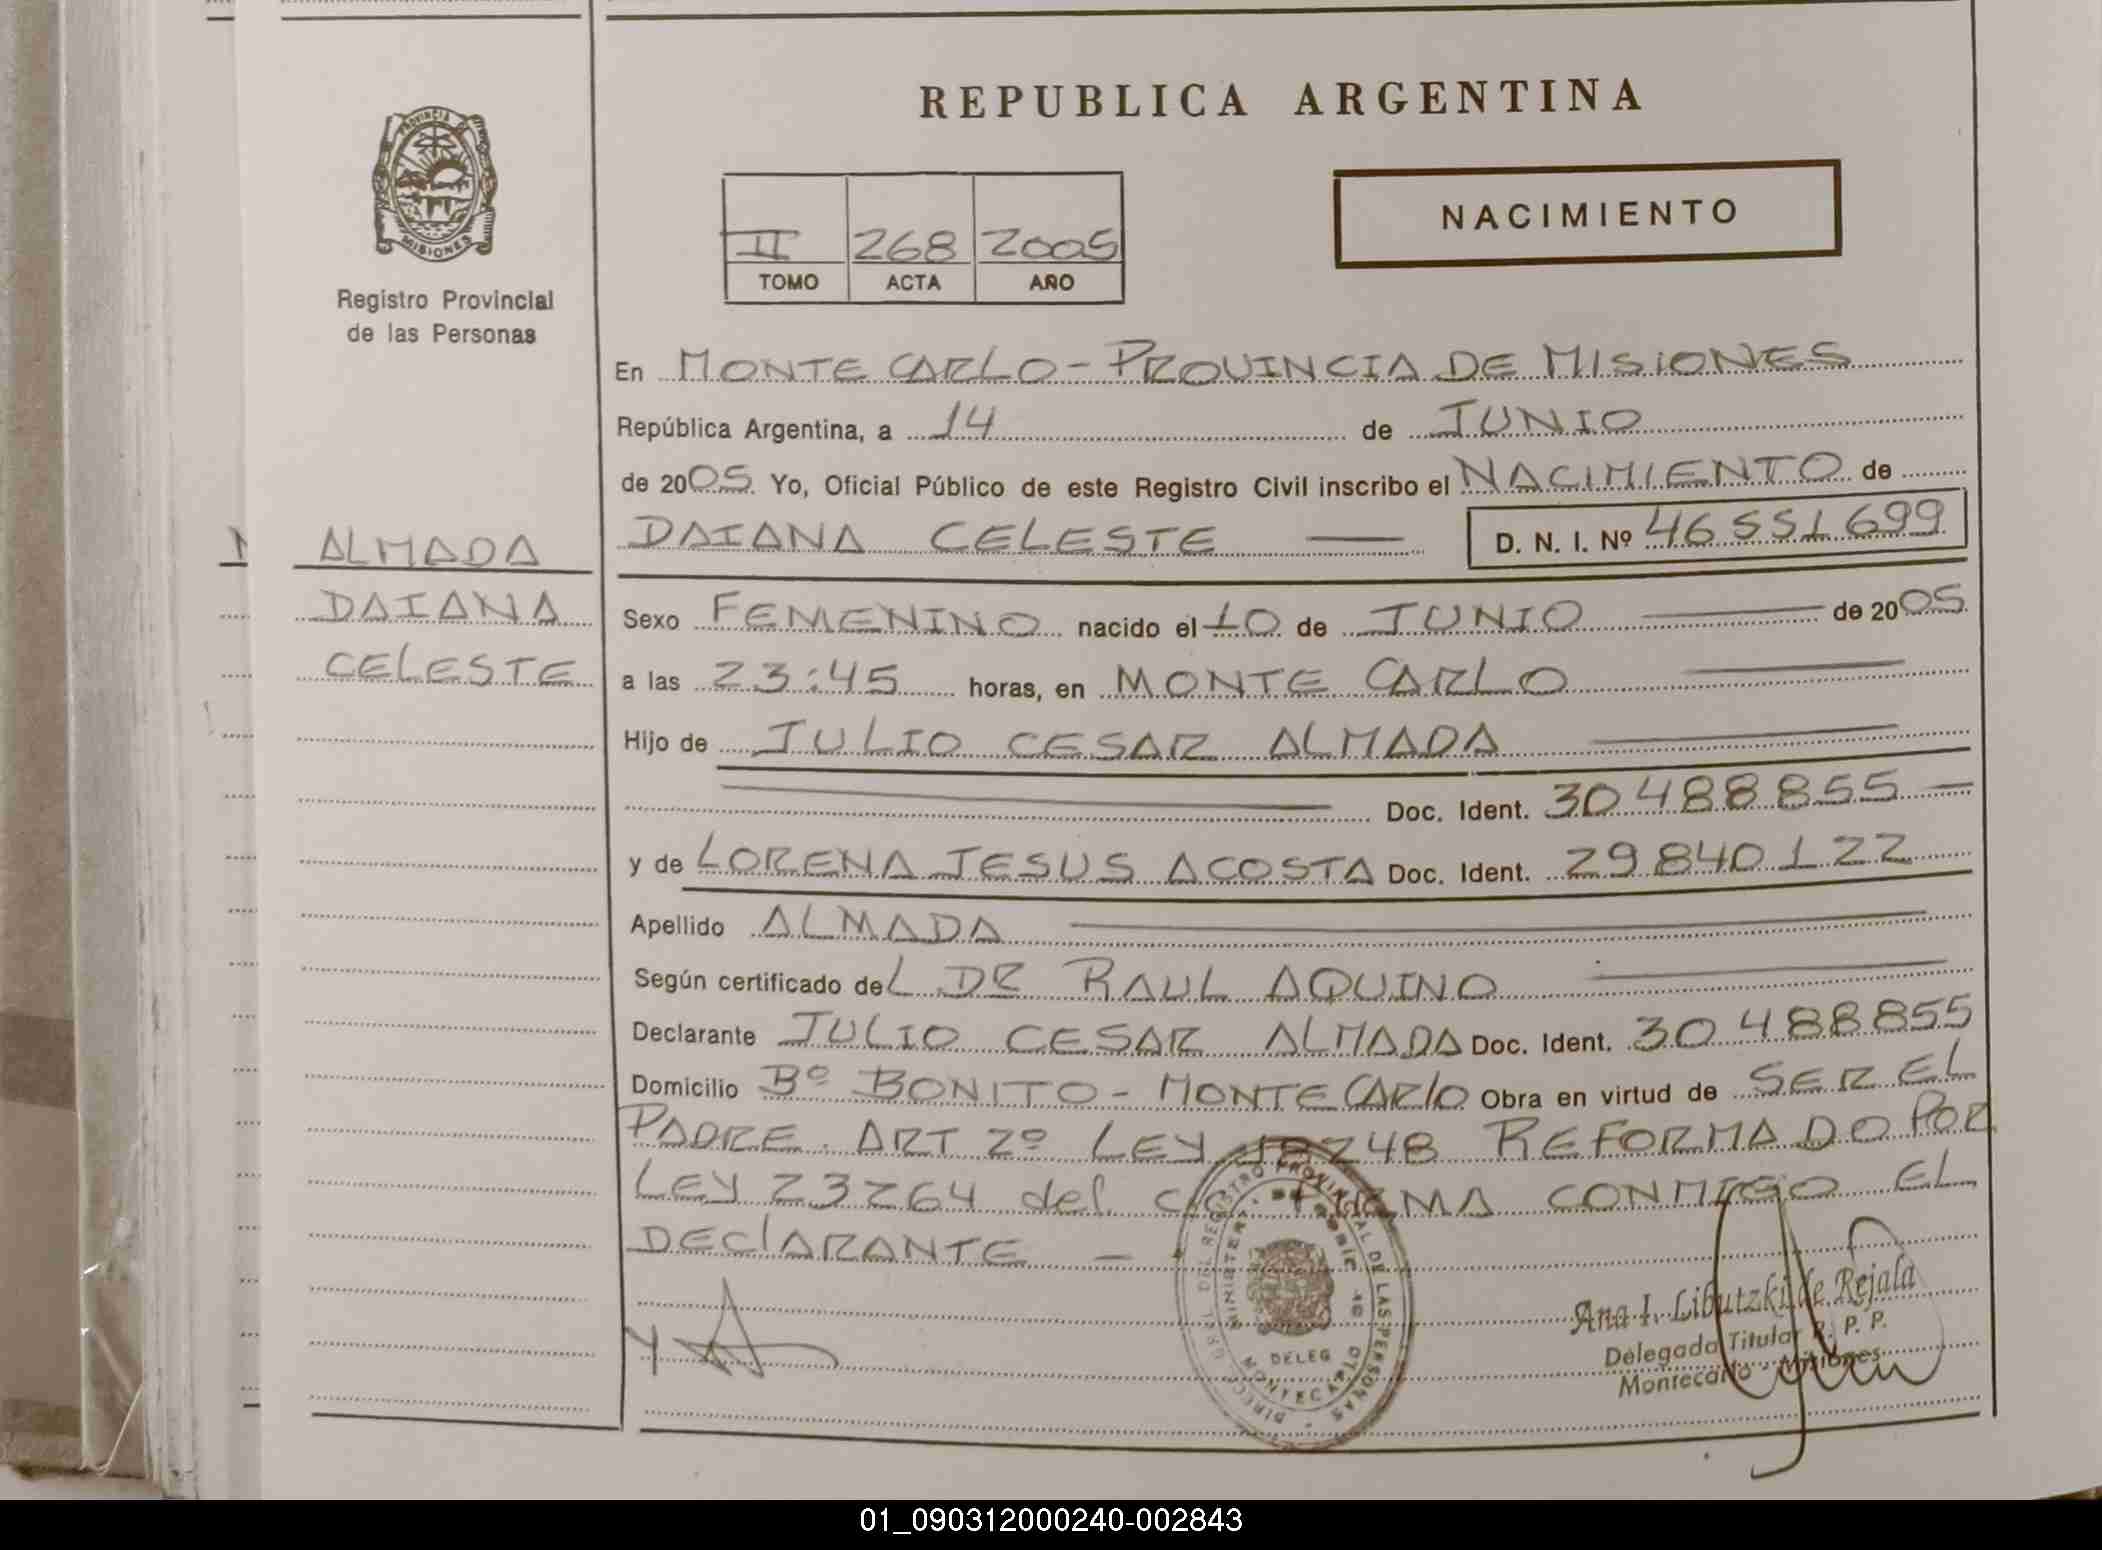 REPUBLICA ARGENTINA
PROVINCIA DE
MISIONES
Registro Provincial
de las Personas
II 268 2005
TOMO ACTA AÑO
NACIMIENTO
En MONTE CARLO - PROVINCIA DE MISIONES
República Argentina, a 14 de JUNIO
de 2005 Yo, Oficial Público de este Registro Civil inscribo el NACIMIENTO de
ALMADA
DAIANA
CELESTE
DAIANA CELESTE — D. N. I. Nº 46551699
Sexo FEMENINO nacido el 10 de JUNIO — de 2005
a las 23:45 horas, en MONTE CARLO —
Hijo de JULIO CESAR ALMADA —
— Doc. Ident. 30488855 —
y de LORENA JESUS ACOSTA Doc. Ident. 29840122
Apellido ALMADA —
Según certificado del DR RAUL AQUINO —
Declarante JULIO CESAR ALMADA Doc. Ident. 30488855
Domicilio Bº BONITO - MONTE CARlO Obra en virtud de SER EL
PADRE. ART 2º LEY 18248 REFORMADO POR
LEY 23264 del FIRMA CONMIGO EL
DEClARANTE —
DELEG
MONTECARLO
Ana I. Libutzki de Rejala
Delegada Titular R. P. P.
Montecarlo - Misiones
01_090312000240-002843